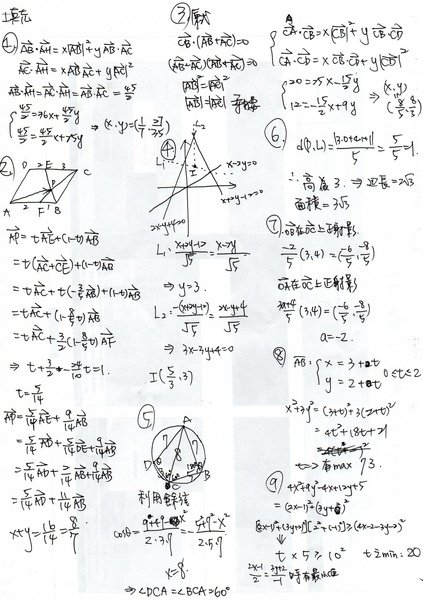 填充
①
AB·AH = x|AB|² + yAB·AC
AC·AH = xAB·AC + y|AC|²
AB·AH = AC·AH = AB·AC = 45/2
{ 45/2 = 36x + 45/2 y
⇒ (x,y) = (1/7,
②
D 2 E 3 C
A 2 F 1 B
AP = tAE + (1-t)AB
= t(AC+CE) + (1-t)AB
= tAC + t(-3/5 AB) + (1-t)AB
= tAC + (1-8/5 t)AB
= tAC + 3/2(1-8/5 t)AF
⇒ t + 3/2 - 24/10 t = 1
t = 5/14
AP = 5/14 AE + 9/14 AB
= 5/14 AD + 5/14 DE + 9/14 AB
= 5/14 AD + 2/14 AB + 9/14 AB
= 5/14 AD + 11/14 AB
x+y = 16/14 = 8/7
③ 原式
CB·(AB+AC) = 0
(AB-AC)(AB+AC) = 0
|AB|² = |AC|²
|AB| = |AC|
④
L₂
L₁
I
x-2y=0
x+2y-12=0
2x-y+4=0
L₁: x+2y-12/√5 = x-2y/√5
⇒ y=3.
L₂: -(x+2y-12)/√5 = 2x-y+4/√5
⇒ 3x-3y+4=0
I(5/3, 3)
⑤
A
7
8
7
D
C
B
利用
cosθ = 9+49-x²/2·3·7 =
x=8
⇒ ∠DCA = ∠BCA = 60°
A
{ CA·CB = x|CB|² + yCB·CD
CA·CD = xCB·CD + y|CD|²
{ 20 = 25x - 15/2 y
12 = -15/2 x + 9y
⇒ (x,y)
⑥
d(P,L) = |3·0+4·1+1|/5 = 5/5 = 1.
∴ 高為3. ⇒ 邊長=2√3
面積 = 3√3
⑦ OB在OC上正射影
-2/5 (3,4) = (-6/5, -8/5)
OA在OC上正射影
3a+4/5 (3,4) = (-6/5, -8/5)
a=-2.
⑧ AB: { x = 3+t
y = 2+t
0≤t≤2
x²+3y² = (3+t)² + 3(2+t)²
= 4t²+18t+21
t=2 有max 73.
⑨
4x²+9y²-4x+12y+5
= (2x-1)²+(3y+2)²
[(2x-1)²+(3y+2)²][2²+(-1)²] ≥ (4x-2-3y-2)²
t × 5 ≥ 10²
t之min: 20
2x-1/2 = 3y+2/-1 時有最小值